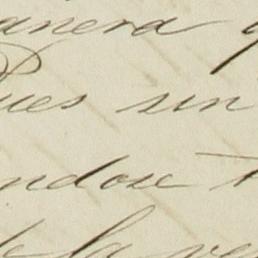 anera
ues sin
ndose
de la ve